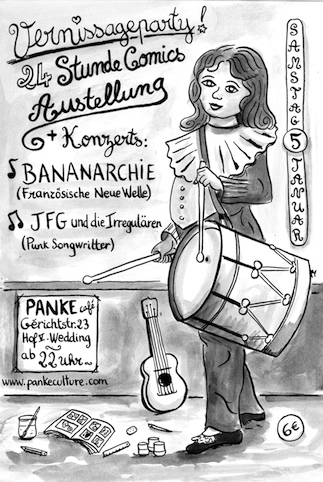 Vernissageparty!
24 Stunde Comics
Austellung
+ Konzerts:
BANANARCHiE
(Französische Neue Welle)
JFG und die Irregulären
(Punk Songwritter)
SAMSTAG 5 JANUAR
PANKE café
Gerichtstr.23
Hof V-Wedding
ab 22 uhr
www.pankeculture.com
6€